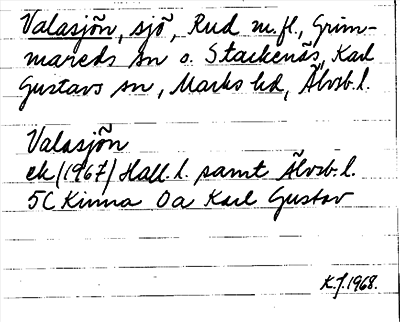 Valasjön, sjö, Rud m.fl., Grim-
mareds sn o. Stackenäs, Karl
Gustavs sn, Marks hd, Älvsb.l.
Valasjön
ek (1967) Hall.l. samt Älvsb.l.
5C Kinna 0a Karl Gustav
K.J. 1968.